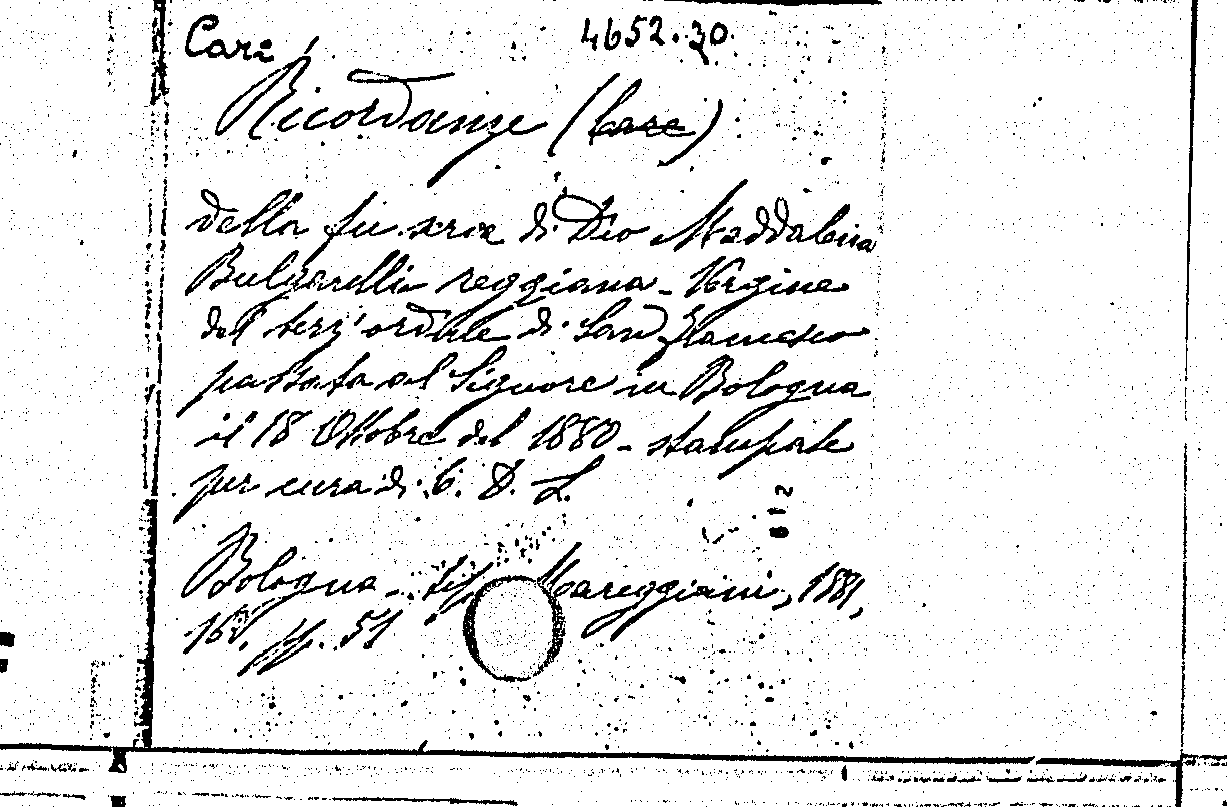 Care 4652.30.
Ricordanze (Care)
della fu serva di Dio Maddalena
Bulgarelli reggiana - Vergine
del terz'ordine di San Francesco
passata al Signore in Bologna
il 18 Ottobre del 1880 - stampate
per cura di C. D. L.
812
Bologna - tip. Mareggiani, 1881,
16º. pp. 51